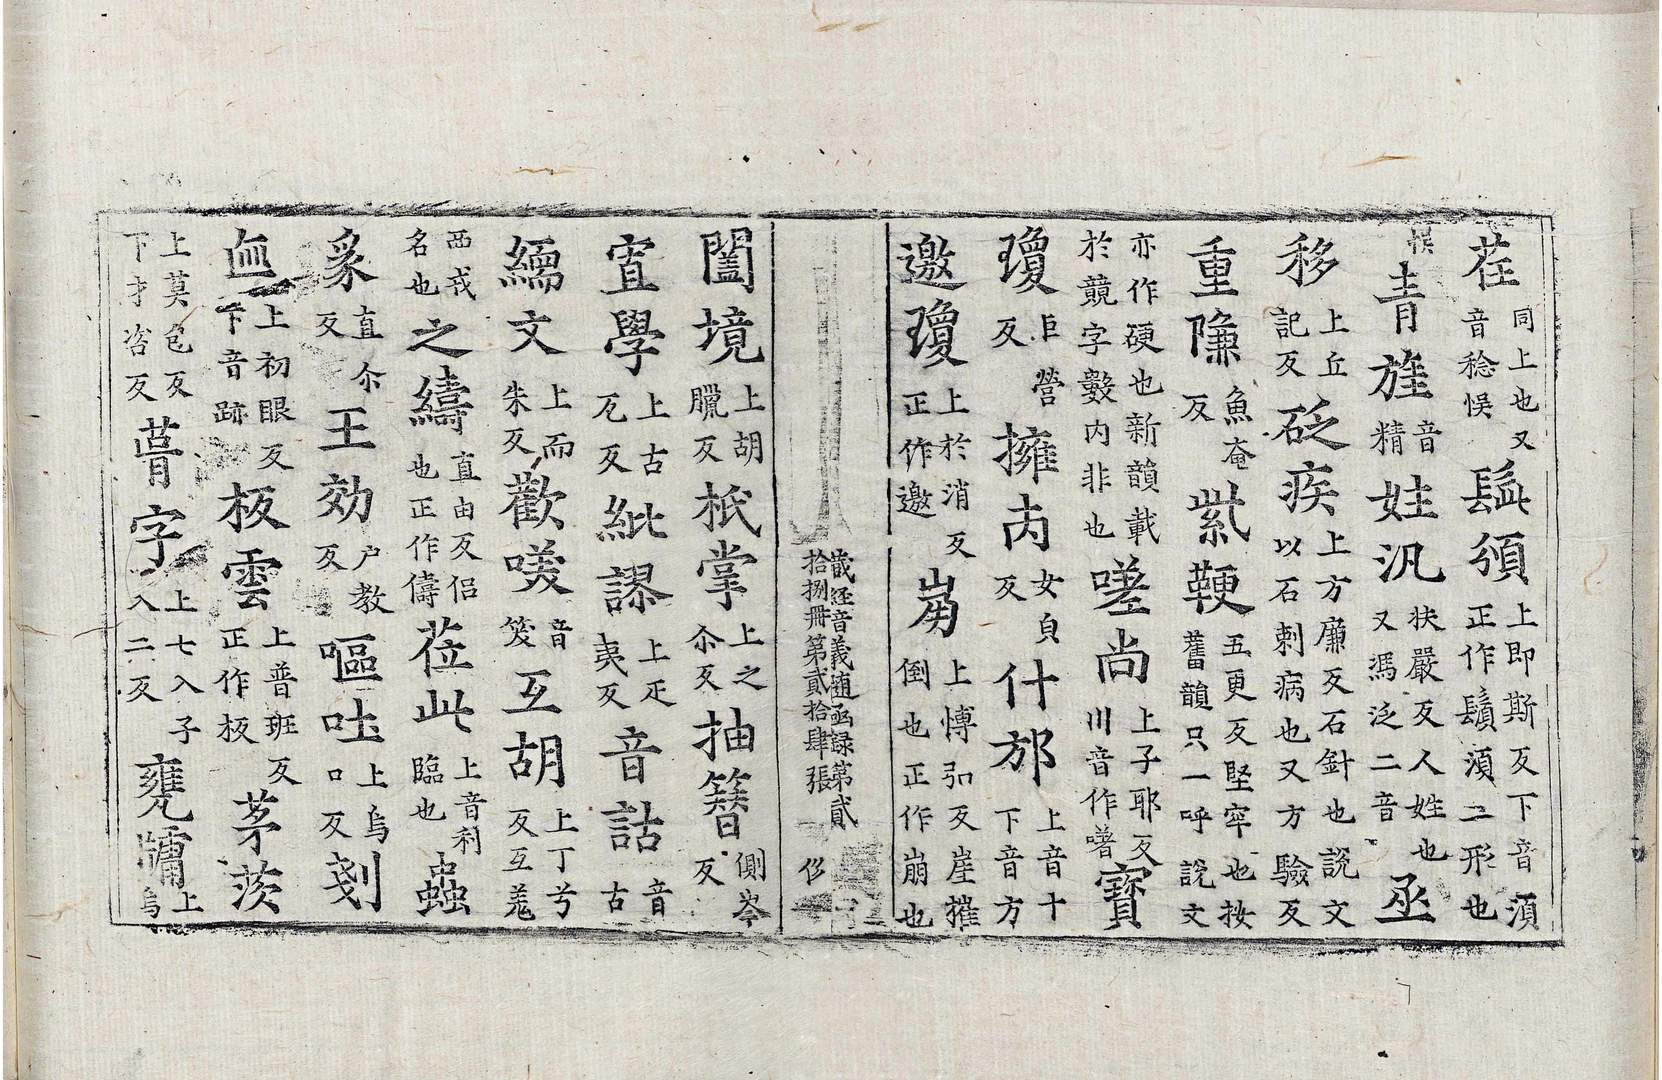 茬同上也又音稔悮髭須上即斯反下音須正作鬚湏二形也
悮青旌音精姓汎扶嚴反人姓也又馮泛二音丞
移上丘記反砭疾上方廉反石針也說文以石刺病也又方驗反
重隒魚奄反紫鞕五更反堅牢也按舊韻只一呼說文
亦作硬也新韻載於競字數內非也嗟尚上子耶反川音作嗜寶
瓊巨營反擁㐫女貟反什邡上音十下音方
邀瓊上於消反正作邀崩上愽弘反崖摧倒也正作崩也
藏経音義随函録第貳拾捌冊第貳拾肆張
闔境上胡臘反祇掌上之尒反抽簪側岑反
寘學上古厄反紕謬上疋夷反音詁音古
繻文上而朱反歡唉音笑互胡上丁兮反互羗
西戎名也之幬直由反侣也正作儔莅此上音利臨也蟲
豸直尒反王効户教反嘔吐上烏口反剗
㢠上初眼反下音跡板雲上普班反正作板茅茨
上莫包反下才咨反葺字上七入子入二反甕牖上烏